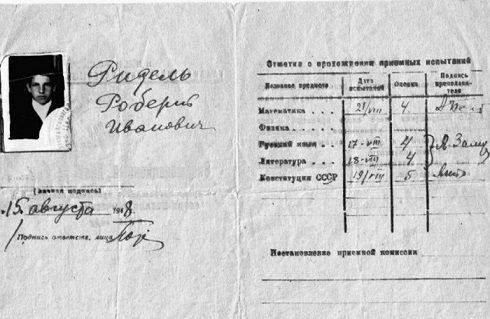 Ридель
Роберт
Иванович
(личная подпись)
15 августа 1948.
Подпись ответств. лица
Отметка о прохождении приемных испытаний
Название предмета Дата испытания Оценка Подпись преподавателя
Математика . . . 21/VIII 4
Физика . . .
Русский язык . . 17-VIII 4
Литература . . . 18-VIII 4
Конституция СССР 19/VIII 5
Постановление приемной комиссии